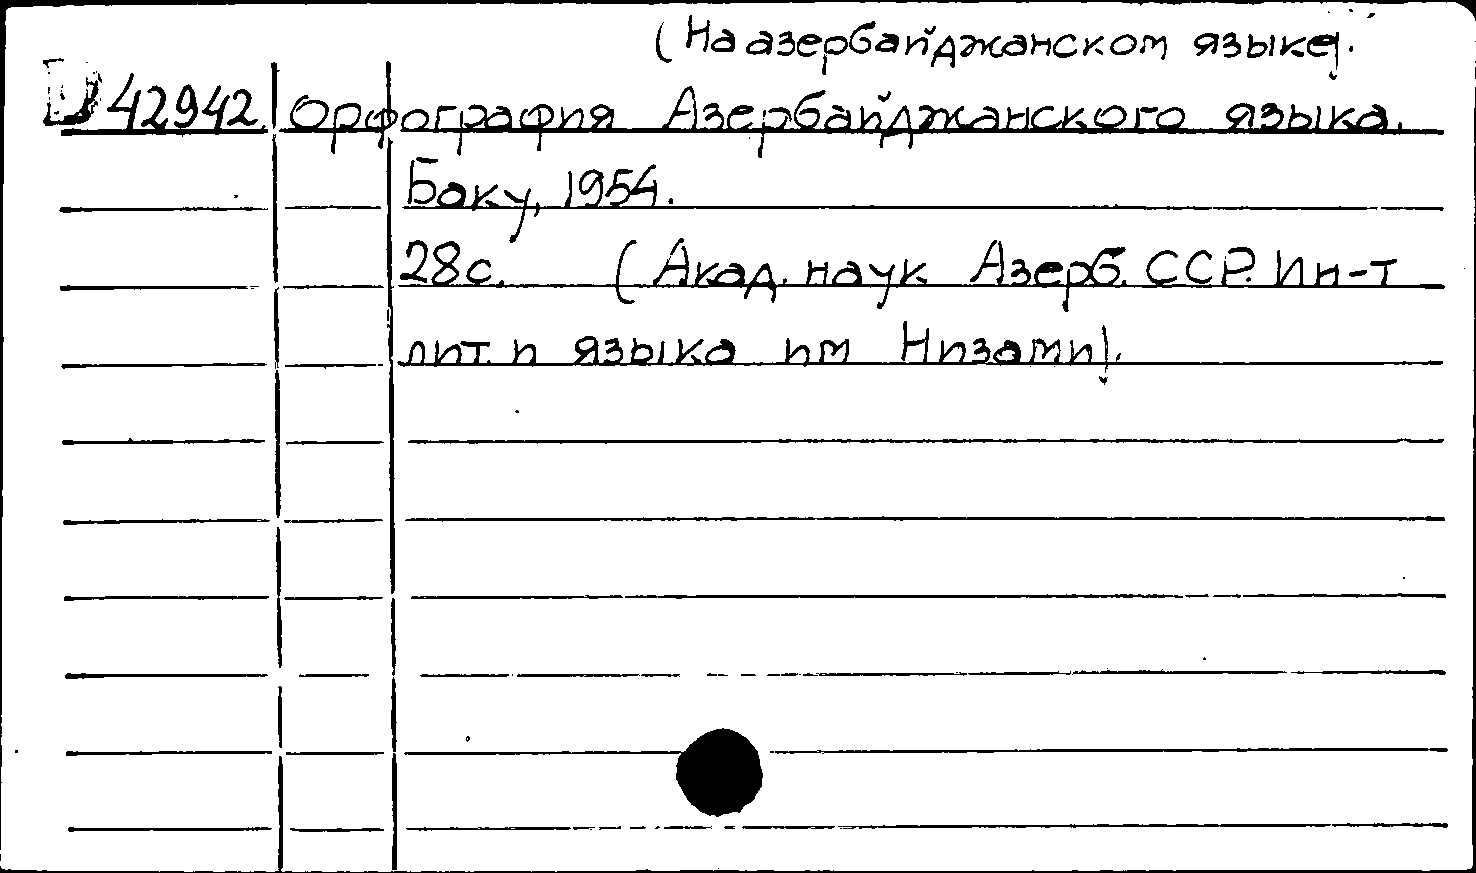 (На азербайджанском языке).
42942. Орфография Азербайджанского языка.
Баку, 1954.
28с. (Акад. наук Азерб. ССР. Ин-т
лит. и языка им Низами).